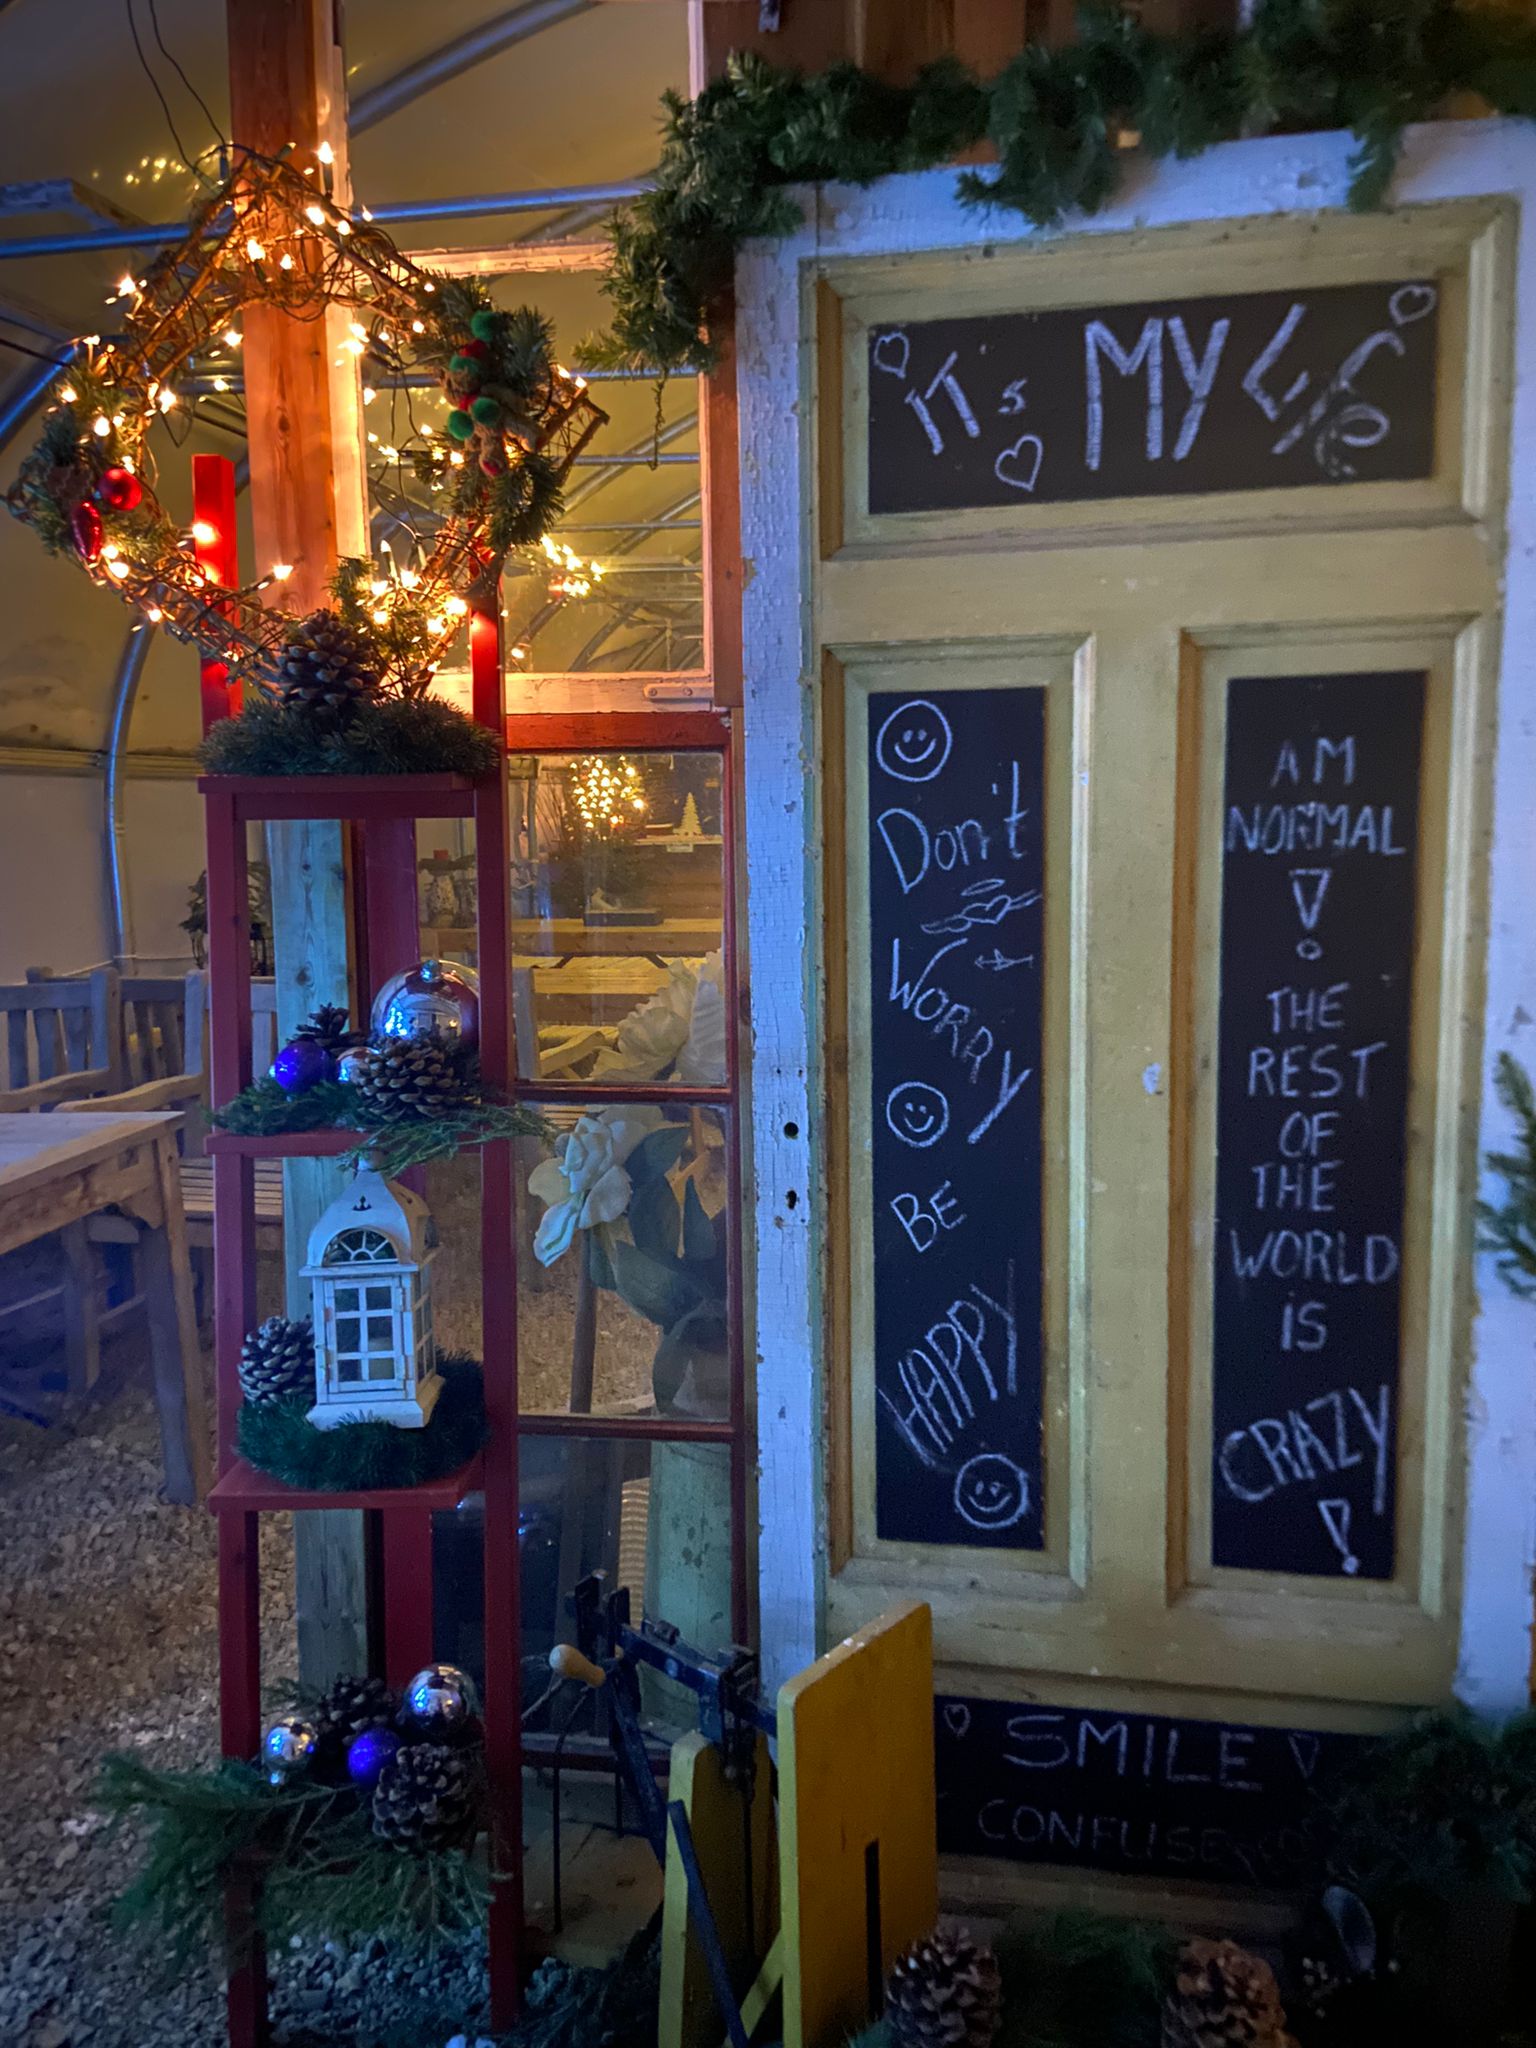 IT's MY Life
Don't
WORRY
BE
HAPPY
AM
NORMAL
!
THE
REST
OF
THE
WORLD
IS
CRAZY
!
SMILE !